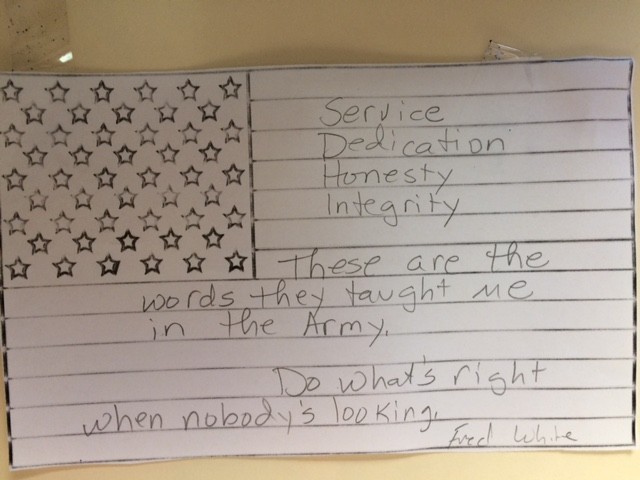 Service
Dedication
Honesty
Integrity
These are the
words they taught me
in the Army.
Do what's right
when nobody's looking.
Fred White